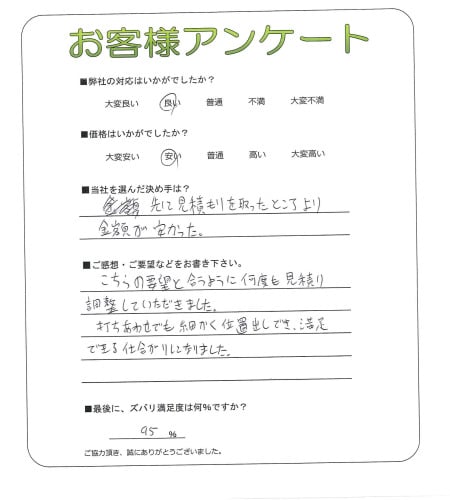 お客様アンケート
■弊社の対応はいかがでしたか？
大変良い 良い 普通 不満 大変不満
■価格はいかがでしたか？
大変安い 安い 普通 高い 大変高い
■当社を選んだ決め手は？
先に見積もりを取ったところより
金額が安かった。
■ご感想・ご要望などをお書き下さい。
こちらの要望と合うように何度も見積り
調整していただきました。
打ちあわせでも細かく位置出しでき、満足
できる仕上がりになりました。
■最後に、ズバリ満足度は何%ですか？
95 %
ご協力頂き、誠にありがとうございました。